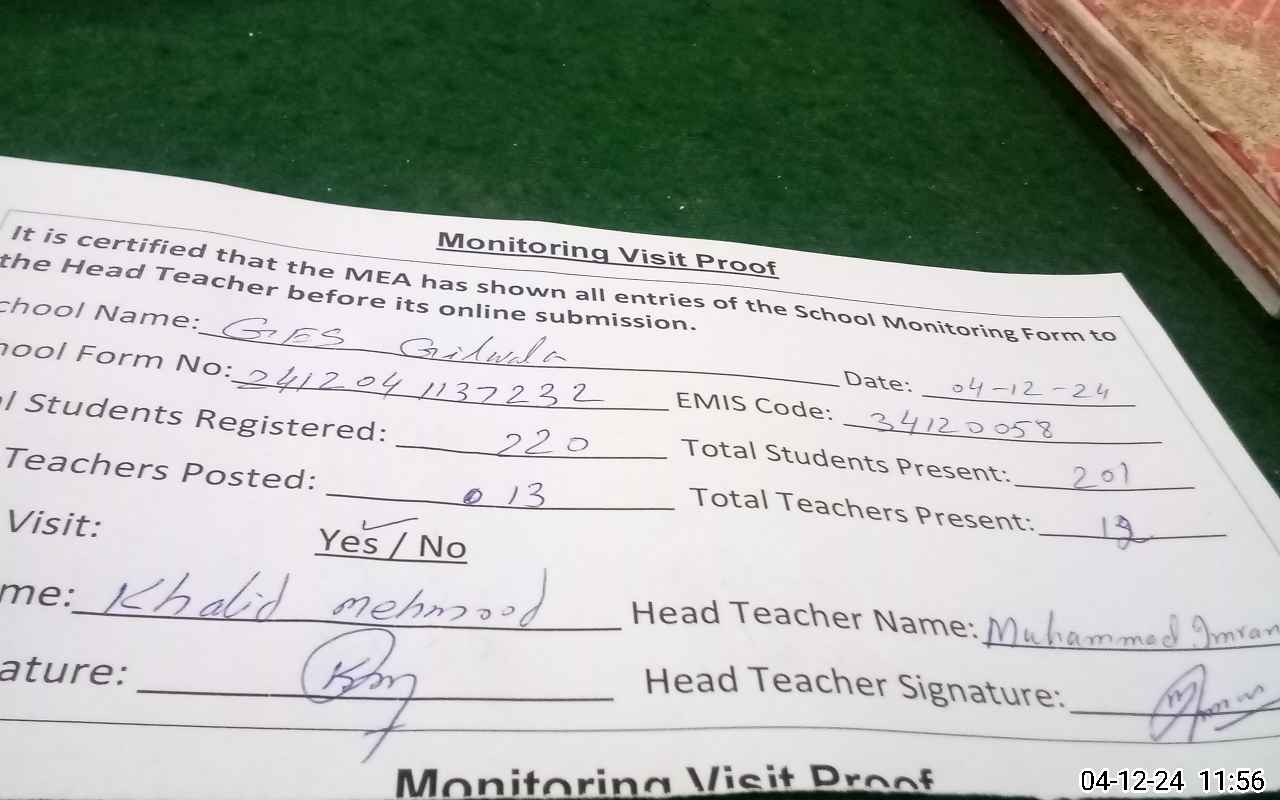 Monitoring Visit Proof
It is certified that the MEA has shown all entries of the School Monitoring Form to
the Head Teacher before its online submission.
chool Name: GES Gilwala Date: 04-12-24
hool Form No: 2412041137232 EMIS Code: 34120058
l Students Registered: 220 Total Students Present: 201
Teachers Posted: 13 Total Teachers Present:
Visit: Yes / No
me: Khalid mehmood Head Teacher Name: Muhammad Imran
ature: Head Teacher Signature:
Monitoring Visit Proof
04-12-24 11:56